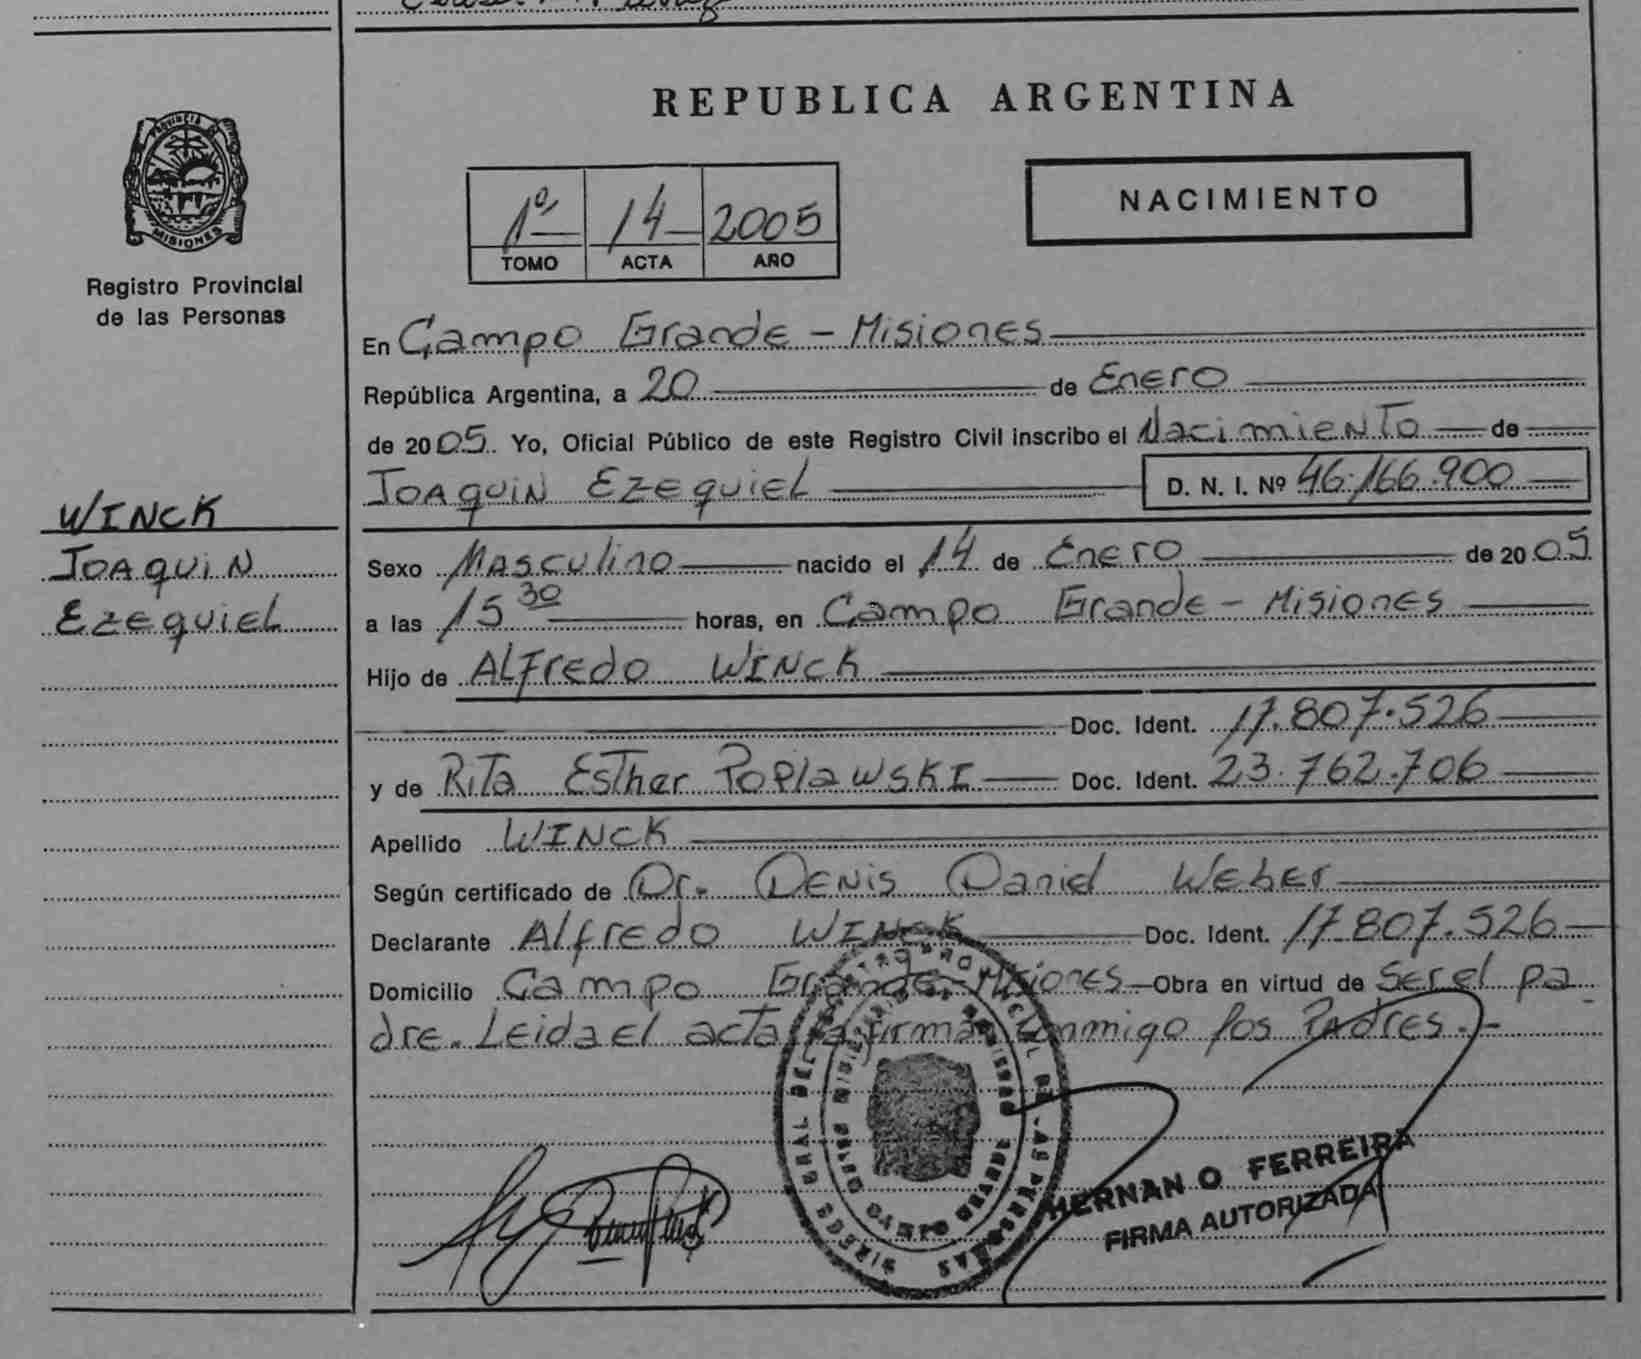 REPUBLICA ARGENTINA
PROVINCIA DE
MISIONES
Registro Provincial
de las Personas
1º 14 2005
TOMO ACTA AÑO
NACIMIENTO
En Campo Grande - Misiones
República Argentina, a 20 de Enero
de 2005. Yo, Oficial Público de este Registro Civil inscribo el Nacimiento de
Joaquin Ezequiel D. N. I. Nº 46.166.900
WINCK
Joaquin
Ezequiel
Sexo Masculino nacido el 14 de Enero de 2005
a las 15 30 horas, en Campo Grande - Misiones
Hijo de Alfredo Winck
Doc. Ident. 17.807.526
y de Rita Esther Poplawski Doc. Ident. 23.762.706
Apellido WINCK
Según certificado de Dr. Denis Daniel Weber
Declarante Alfredo Winck Doc. Ident. 17.807.526
Domicilio Campo Grande - Misiones Obra en virtud de Ser el pa
dre. Leida el acta la firman conmigo los Padres.-
HERNAN O FERREIRA
FIRMA AUTORIZADA